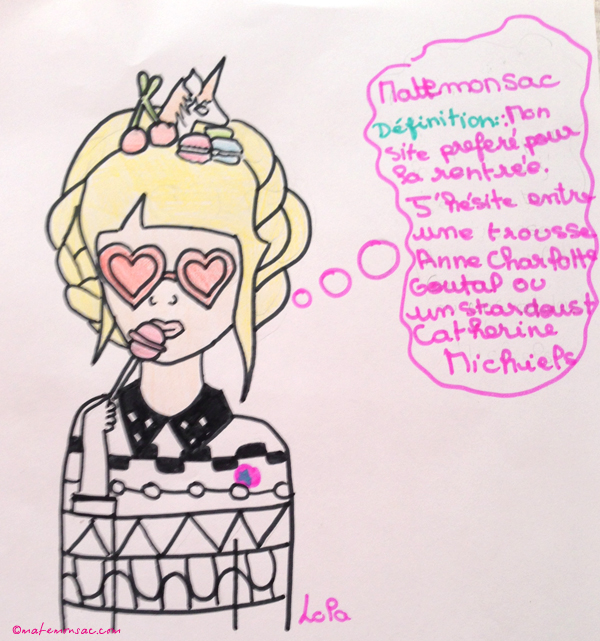 Matemonsac
Définition: Mon
site preferé pour
la rentrée.
J'hésite entre
une trousse
Anne Charlotte
Goutal ou
un stardoust
Catherine
Michiels
Lola
©matemonsac.com